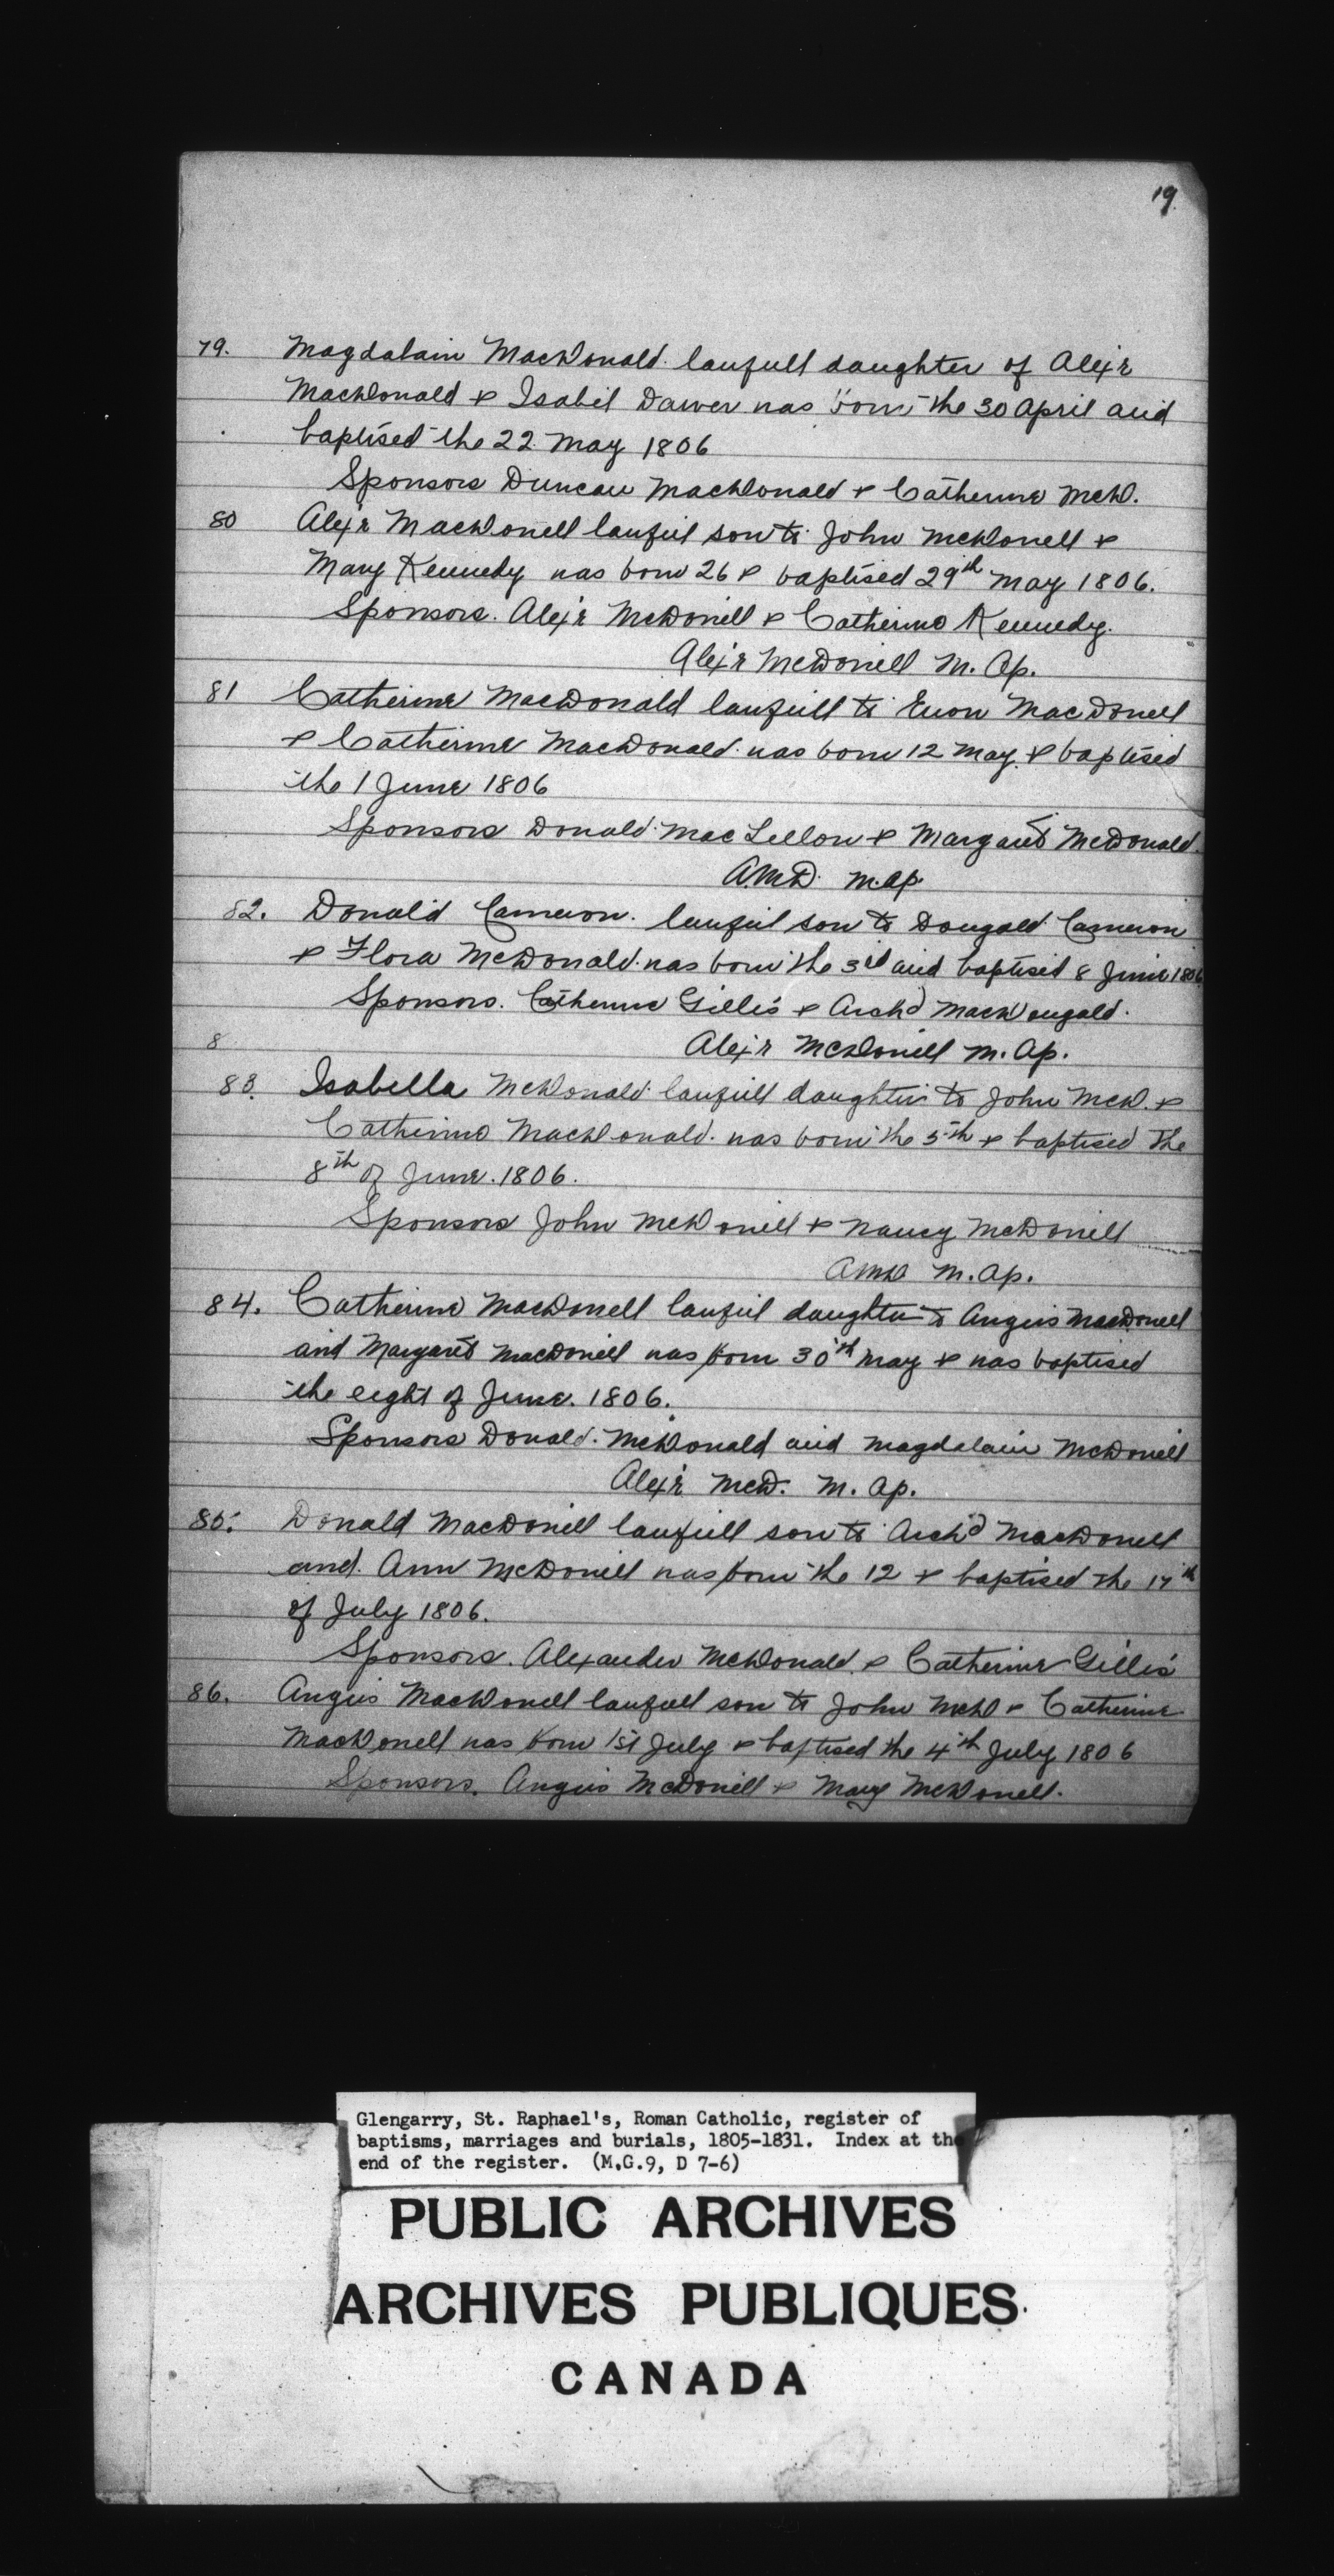 19
79. Magdalain MacDonald lawfull daughter of Alex'r
MacDonald & Isabel Dawer was born the 30 April and
baptised the 22 May 1806
Sponsors Duncan MacDonald & Catherine McD.
80 Alex'r MacDonell lawful son to John McDonell &
Mary Kennedy was born 26 & baptised 29th May 1806.
Sponsors. Alex'r McDonell & Catherine Kennedy.
Alex'r McDonell M. Ap.
81 Catherine MacDonald lawfull to Euon MacDonell
& Catherine MacDonald was born 12 May & baptised
the 1 June 1806
Sponsors Donald MacLellon & Margaret McDonald.
A.McD. M.Ap.
82. Donald Cameron lawful son to Dougald Cameron
& Flora McDonald was born the 3rd and baptised 8 June 1806
Sponsors. Catherine Gillis & Arch'd MacDougald.
8 Alex'r McDonell M. Ap.
83. Isabella McDonald lawfull daughter to John McD. &
Catherine MacDonald was born the 5th & baptised the
8th of June. 1806.
Sponsors John McDonell & Nancy McDonell
AMcD M. Ap.
84. Catherine MacDonell lawful daughter to Angus MacDonell
and Margaret MacDonell was born 30th May & was baptised
the eight of June. 1806.
Sponsors Donald McDonald and Magdalain McDonell
Alex'r McD. M. Ap.
85. Donald MacDonell lawfull son to Arch'd MacDonell
and Ann McDonell was born the 12 & baptised the 17th
of July 1806.
Sponsors. Alexander McDonald & Catherine Gillis
86. Angus MacDonell lawfull son to John McD & Catherine
MacDonell was born 1st July & baptised the 4th July 1806
Sponsors. Angus McDonell & Mary McDonell.
Glengarry, St. Raphael's, Roman Catholic, register of
baptisms, marriages and burials, 1805-1831. Index at the
end of the register. (M.G.9, D 7-6)
PUBLIC ARCHIVES
ARCHIVES PUBLIQUES
CANADA